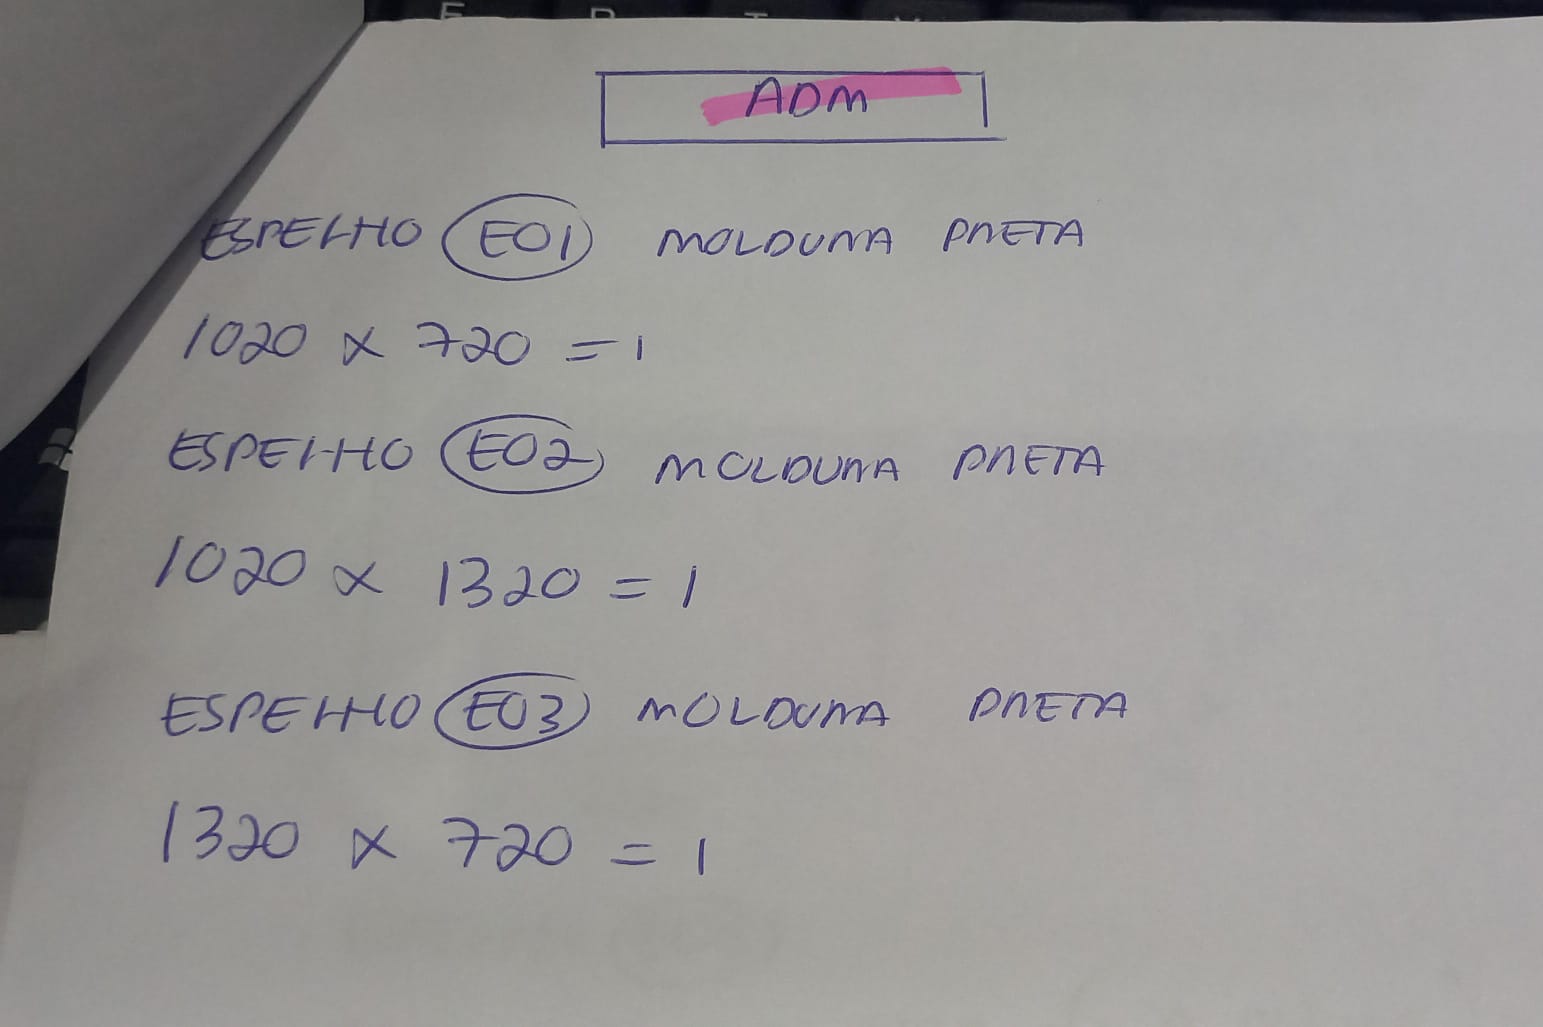 ADM
ESPELHO E01 MOLDURA PRETA
1020 x 720 = 1
ESPELHO E02 MOLDURA PRETA
1020 x 1320 = 1
ESPELHO E03 MOLDURA PRETA
1320 x 720 = 1